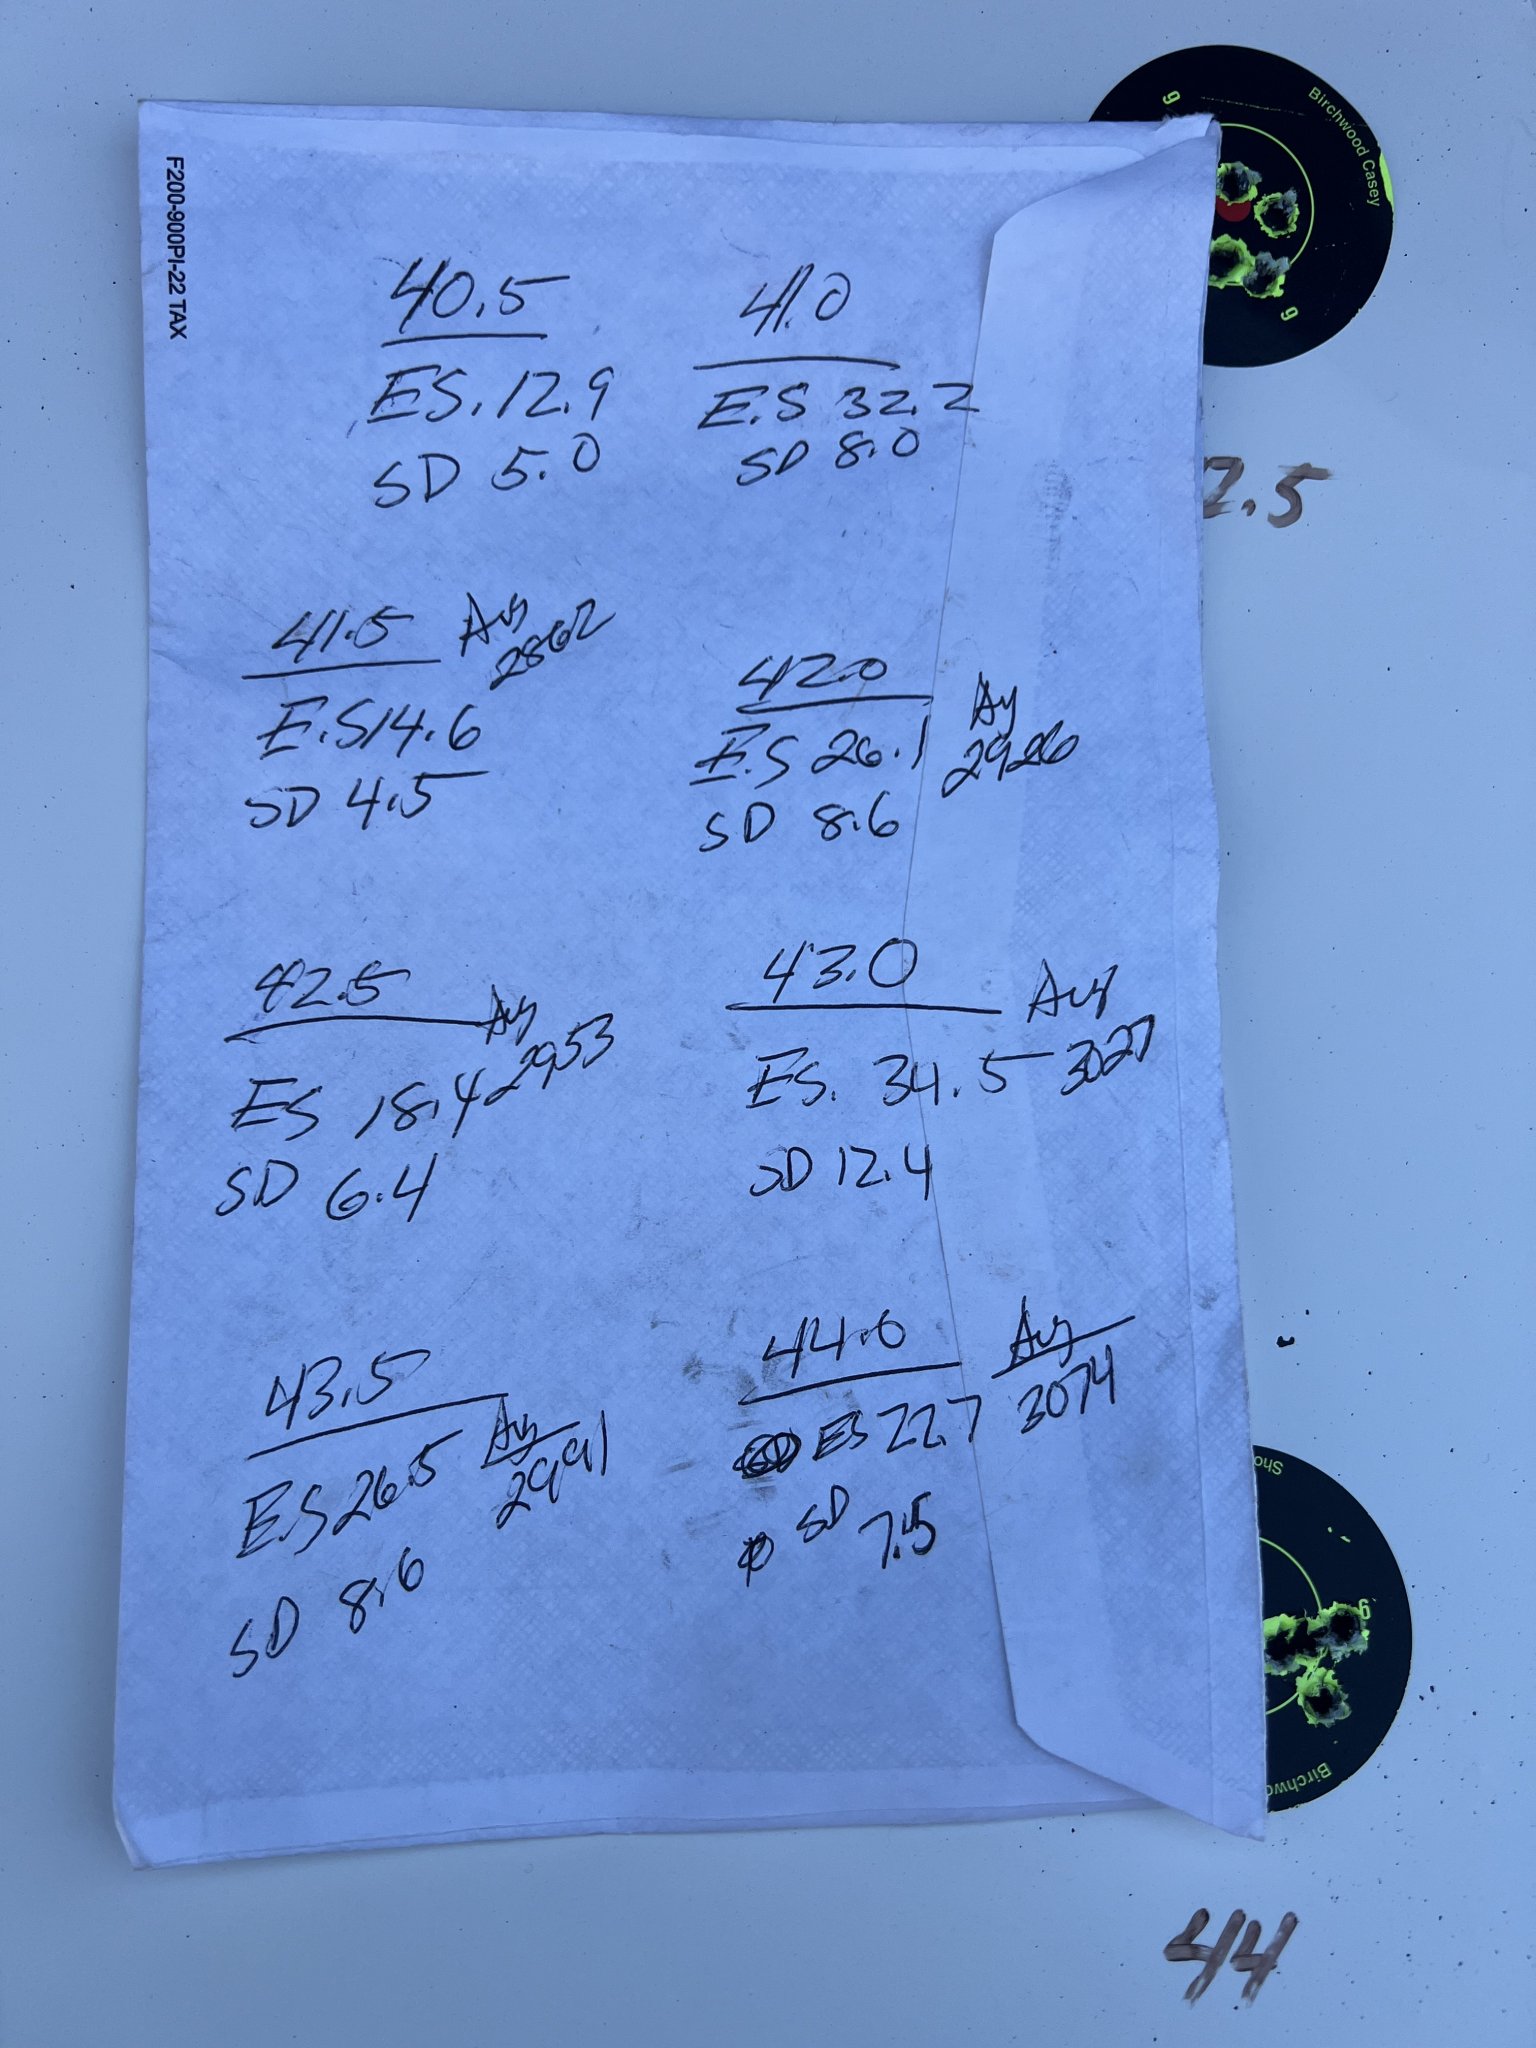 F200-900PI-22 TAX
9
Birchwood Casey
9
40.5
ES. 12.9
SD 5.0
41.0
E.S 32.2
SD 8.0
2.5
41.5 Avg
2862
E.S 14.6
SD 4.5
42.0 Avg
E.S 26.1 2926
SD 8.6
42.5 Avg
2953
ES 18.4
SD 6.4
43.0 Avg
ES. 34.5 3027
SD 12.4
43.5 Avg
E.S 26.5 2991
SD 8.6
44.0 Avg
ES 22.7 3074
SD 7.5
Sho
9
Birchwo
44